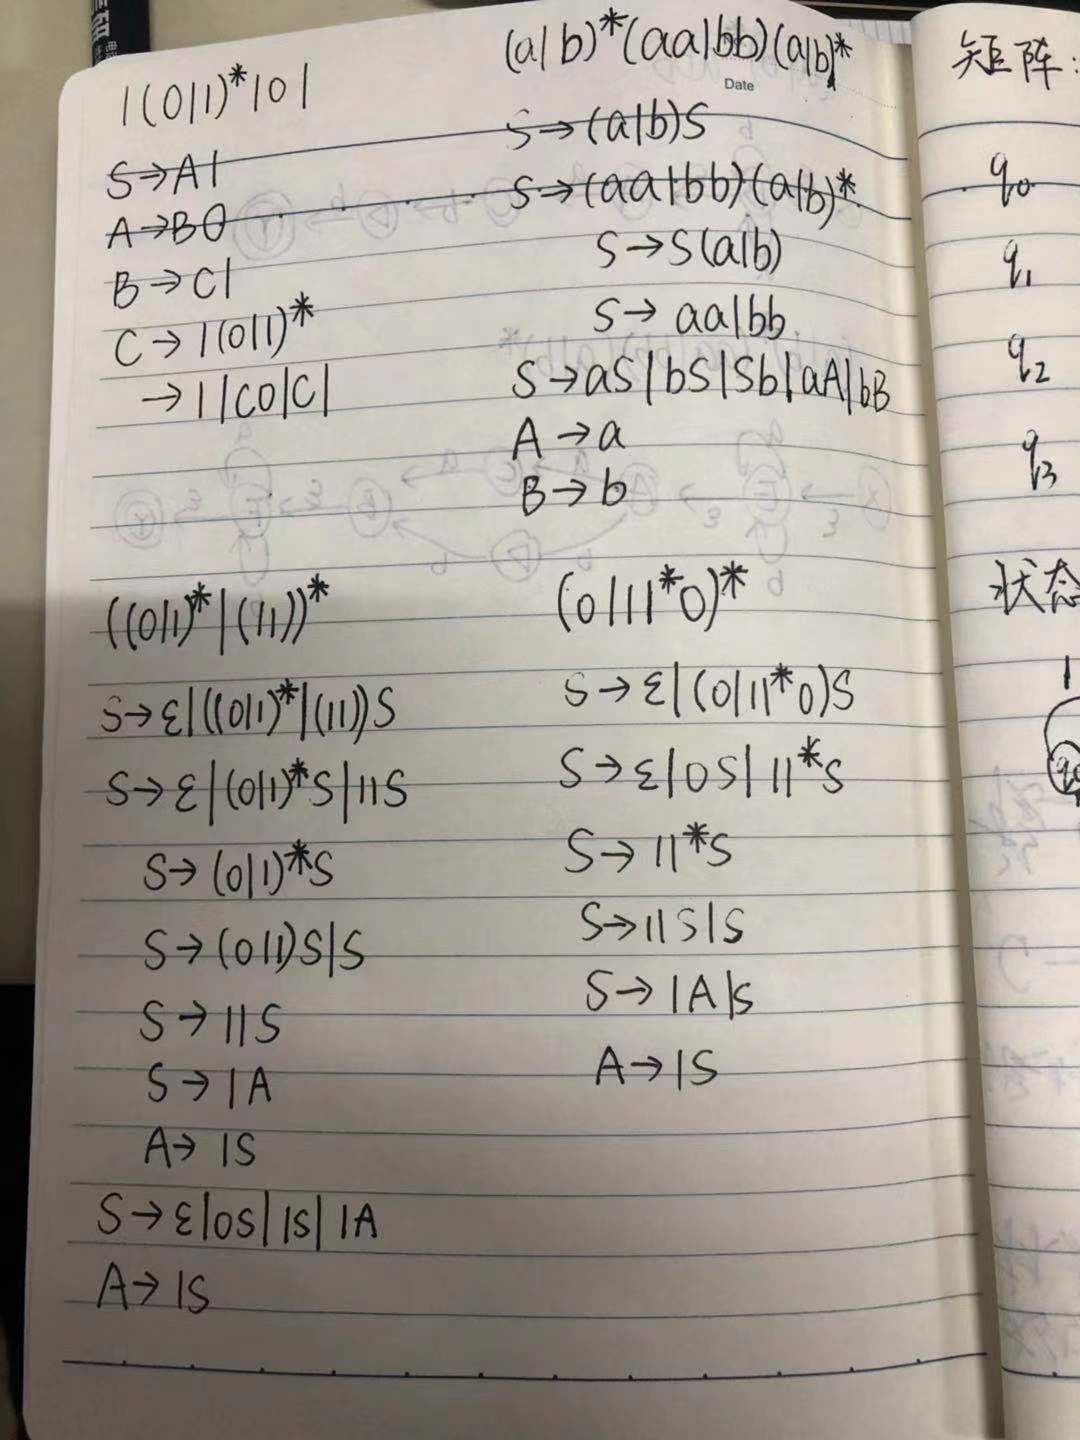 1(0|1)*101
S→A1
A→B0
B→C1
C→1(0|1)*
→1|C0|C1
(a|b)*(aa|bb)(a|b)*
Date
S→(a|b)S
S→(aa|bb)(a|b)*
S→S(a|b)
S→aa|bb
S→aS|bS|Sb|aA|bB
A→a
B→b
((0|1)*|(11))*
S→ε|((0|1)*|(11))S
S→ε|(0|1)*S|11S
S→(0|1)*S
S→(0|1)S|S
S→11S
S→1A
A→1S
S→ε|0S|1S|1A
A→1S
(0|11*0)*
S→ε|(0|11*0)S
S→ε|0S|11*S
S→11*S
S→11S|S
S→1A|S
A→1S
矩阵:
q0
q1
q2
q3
状态
1
q0